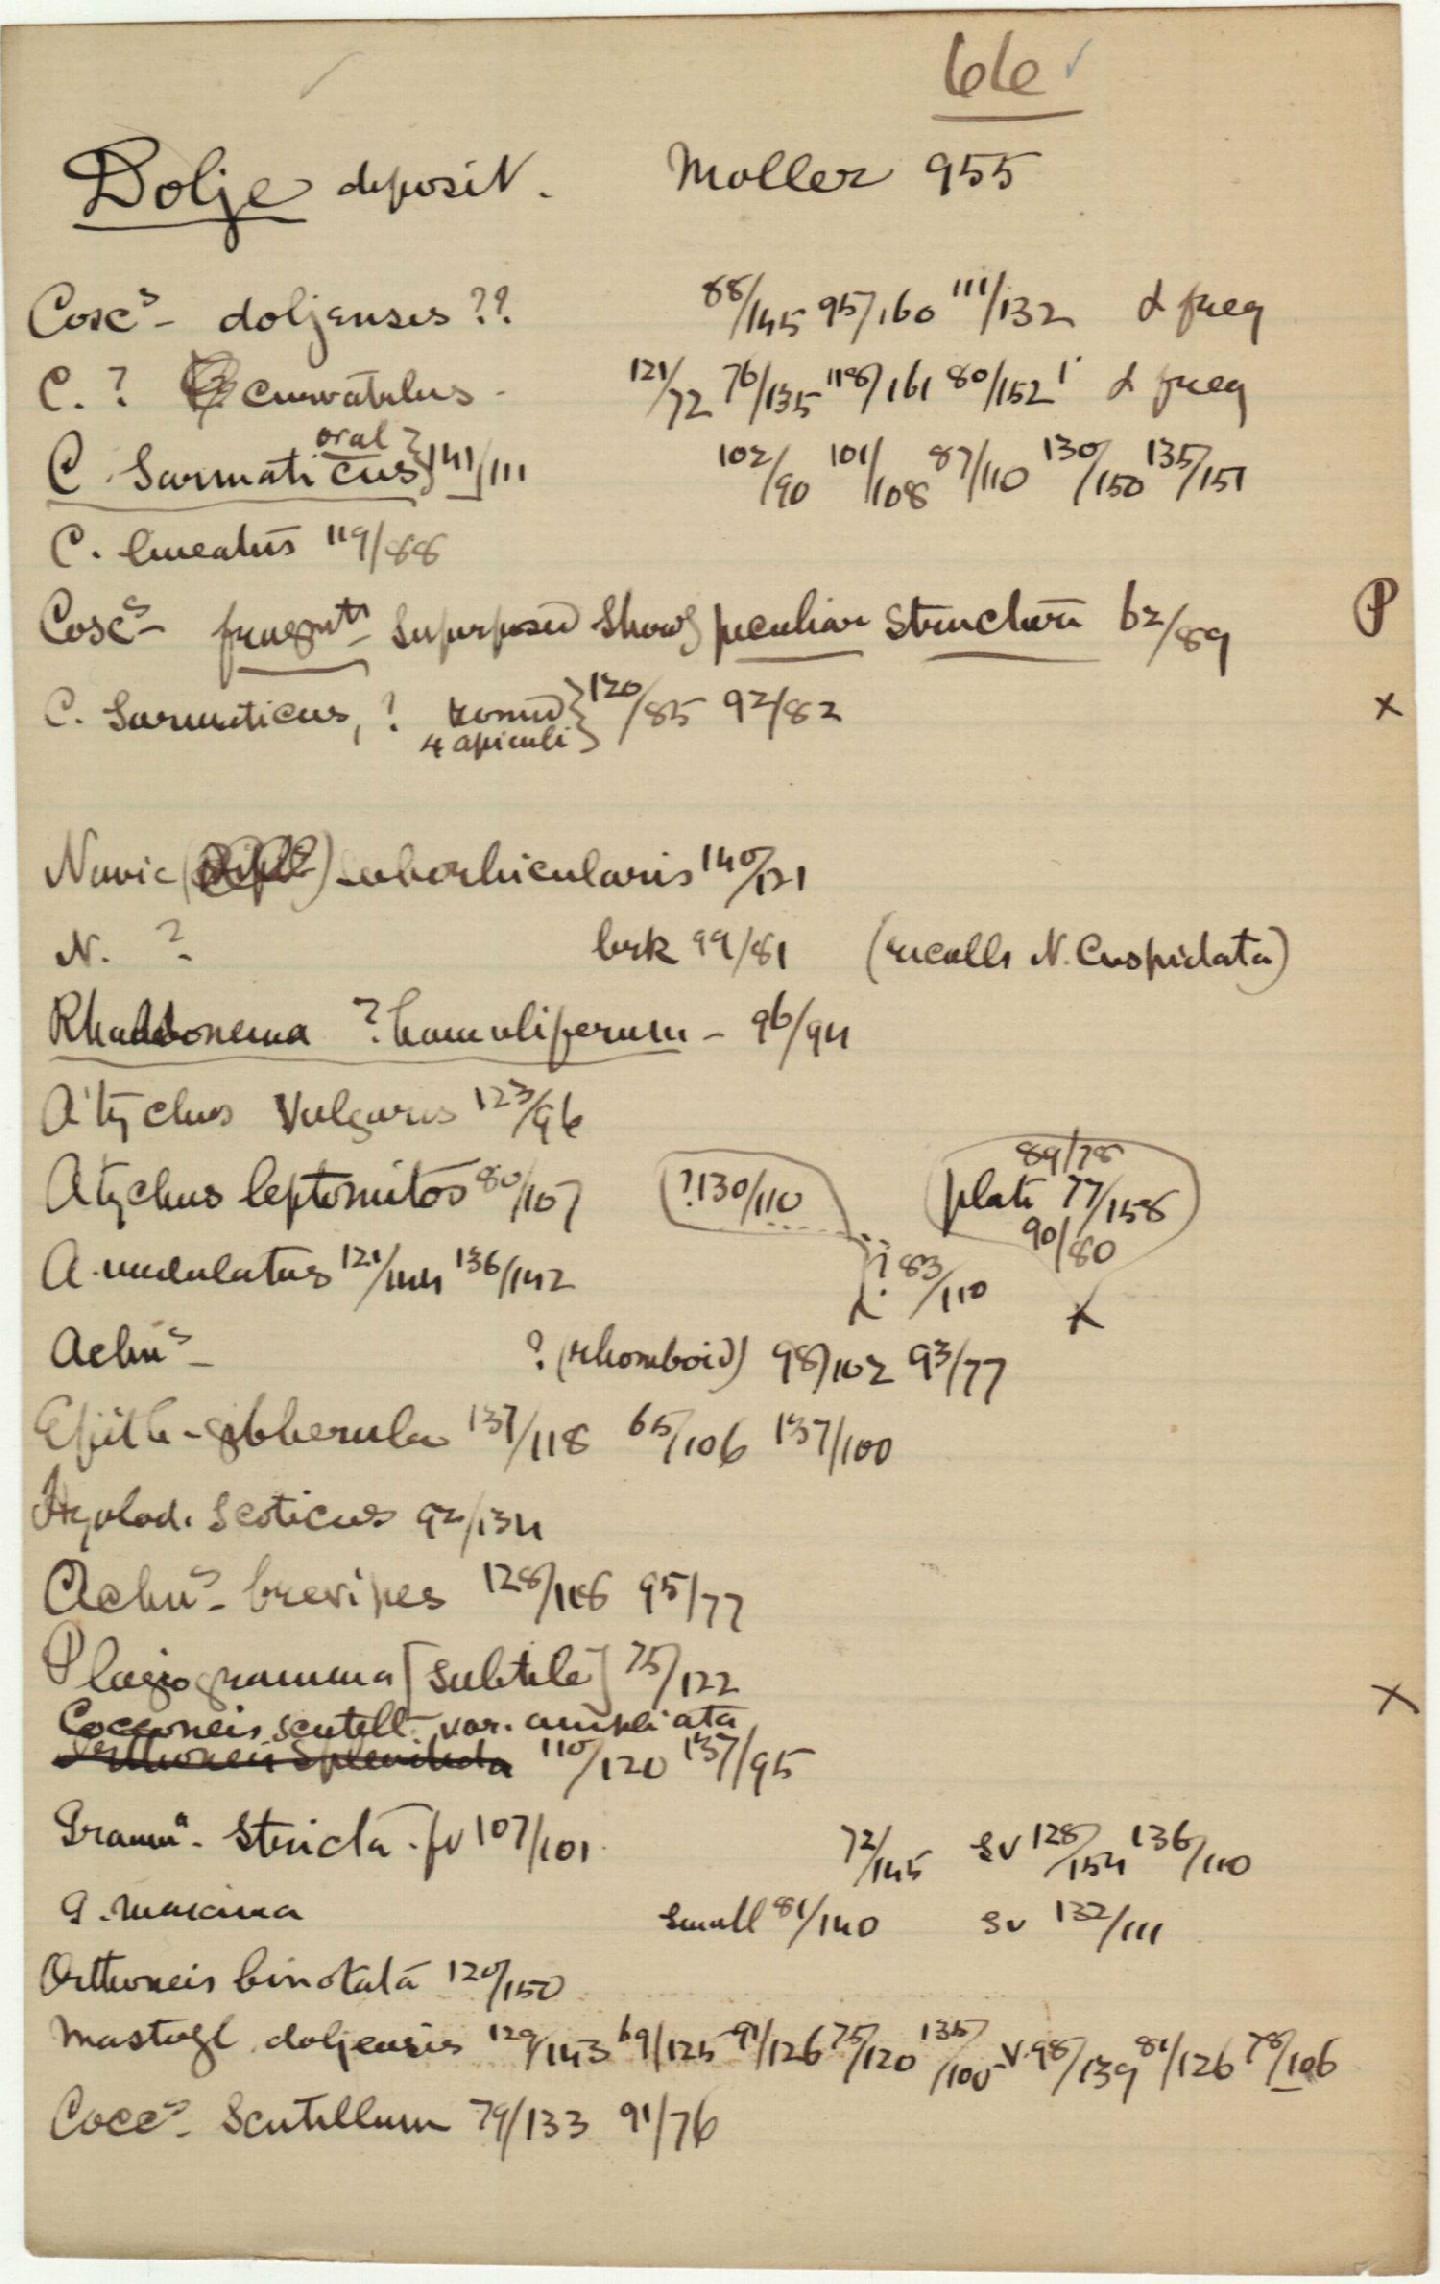 66
Dolje deposit. Moller 955
Cosc.s doljensis ?? 88/145 95/160 111/132 & freq
C. ? curvatulus - 121/72 76/135 118/161 80/152 & freq
oral
C Sarmaticus } 141/111 102/90 101/108 87/110 130/150 135/151
C. lineatus 119/88
Coscs- fragmts superposed shows peculiar structure 62/89 P
C. Sarmaticus, ? round } 120/85 92/82 x
4 apiculi
Navic ( ) suborbicularis 140/121
N. ? brk 99/81 (recalls N. Cuspidata)
Rhabdonema ? hamuliferum - 96/94
A'tychus Vulgaris 123/96
89/78
Atychus leptomitos 80/107 ?130/110 plate 77/158
90/80
A. undulatus 121/144 136/142 ? 83/110 x
Achns- ? (rhomboid) 98/102 93/77
Epith - gibberula 137/118 65/106 137/100
Hyalod. Scoticus 92/134
Achns- brevipes 128/118 95/77
Plagiogramma [subtile] 75/122
Cocconeis scutell- var. ampliata x
Orthoneis Splendida 110/120 137/95
Gramma- Stricta - fv 107/101 72/145 sv 128/154 136/110
G. maxima small 81/140 sv 132/111
Orthoneis binotata 120/150
Mastogl doljensis 129/143 69/125 91/126 75/120 135/100 v. 98/139 81/126 78/106
Coccs- Scutellum 79/133 91/76